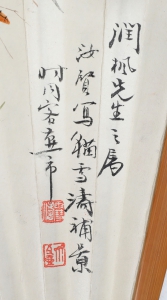 潤楓先生之属
汝賢寫貓雪濤補景
时同客燕市